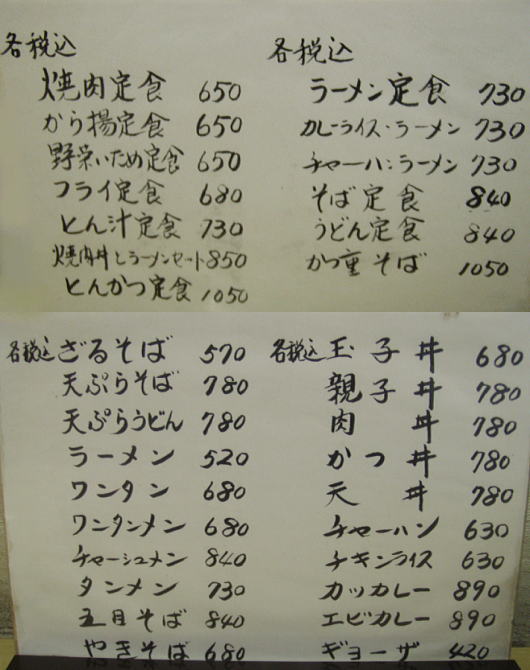 各税込
焼肉定食 650
から揚定食 650
野菜いため定食 650
フライ定食 680
とん汁定食 730
焼肉丼とラーメンセット 850
とんかつ定食 1050
各税込
ラーメン定食 730
カレーライス・ラーメン 730
チャーハン・ラーメン 730
そば定食 840
うどん定食 840
かつ重そば 1050
各税込 ざるそば 570
天ぷらそば 780
天ぷらうどん 780
ラーメン 520
ワンタン 680
ワンタンメン 680
チャーシュメン 840
タンメン 730
五目そば 840
やきそば 680
各税込 玉子丼 680
親子丼 780
肉丼 780
かつ丼 780
天丼 780
チャーハン 630
チキンライス 630
カッカレー 890
エビカレー 890
ギョーザ 420